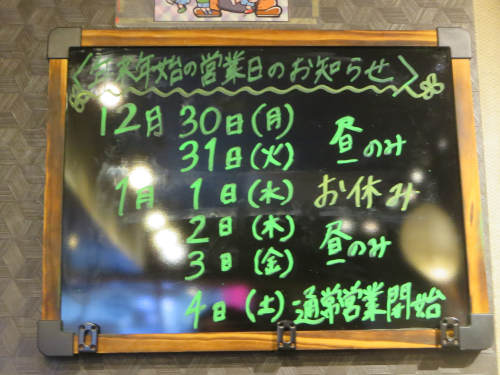 年末年始の営業日のお知らせ
12月 30日(月) 昼のみ
31日(火)
1月 1日(水) お休み
2日(木) 昼のみ
3日(金)
4日(土) 通常営業開始